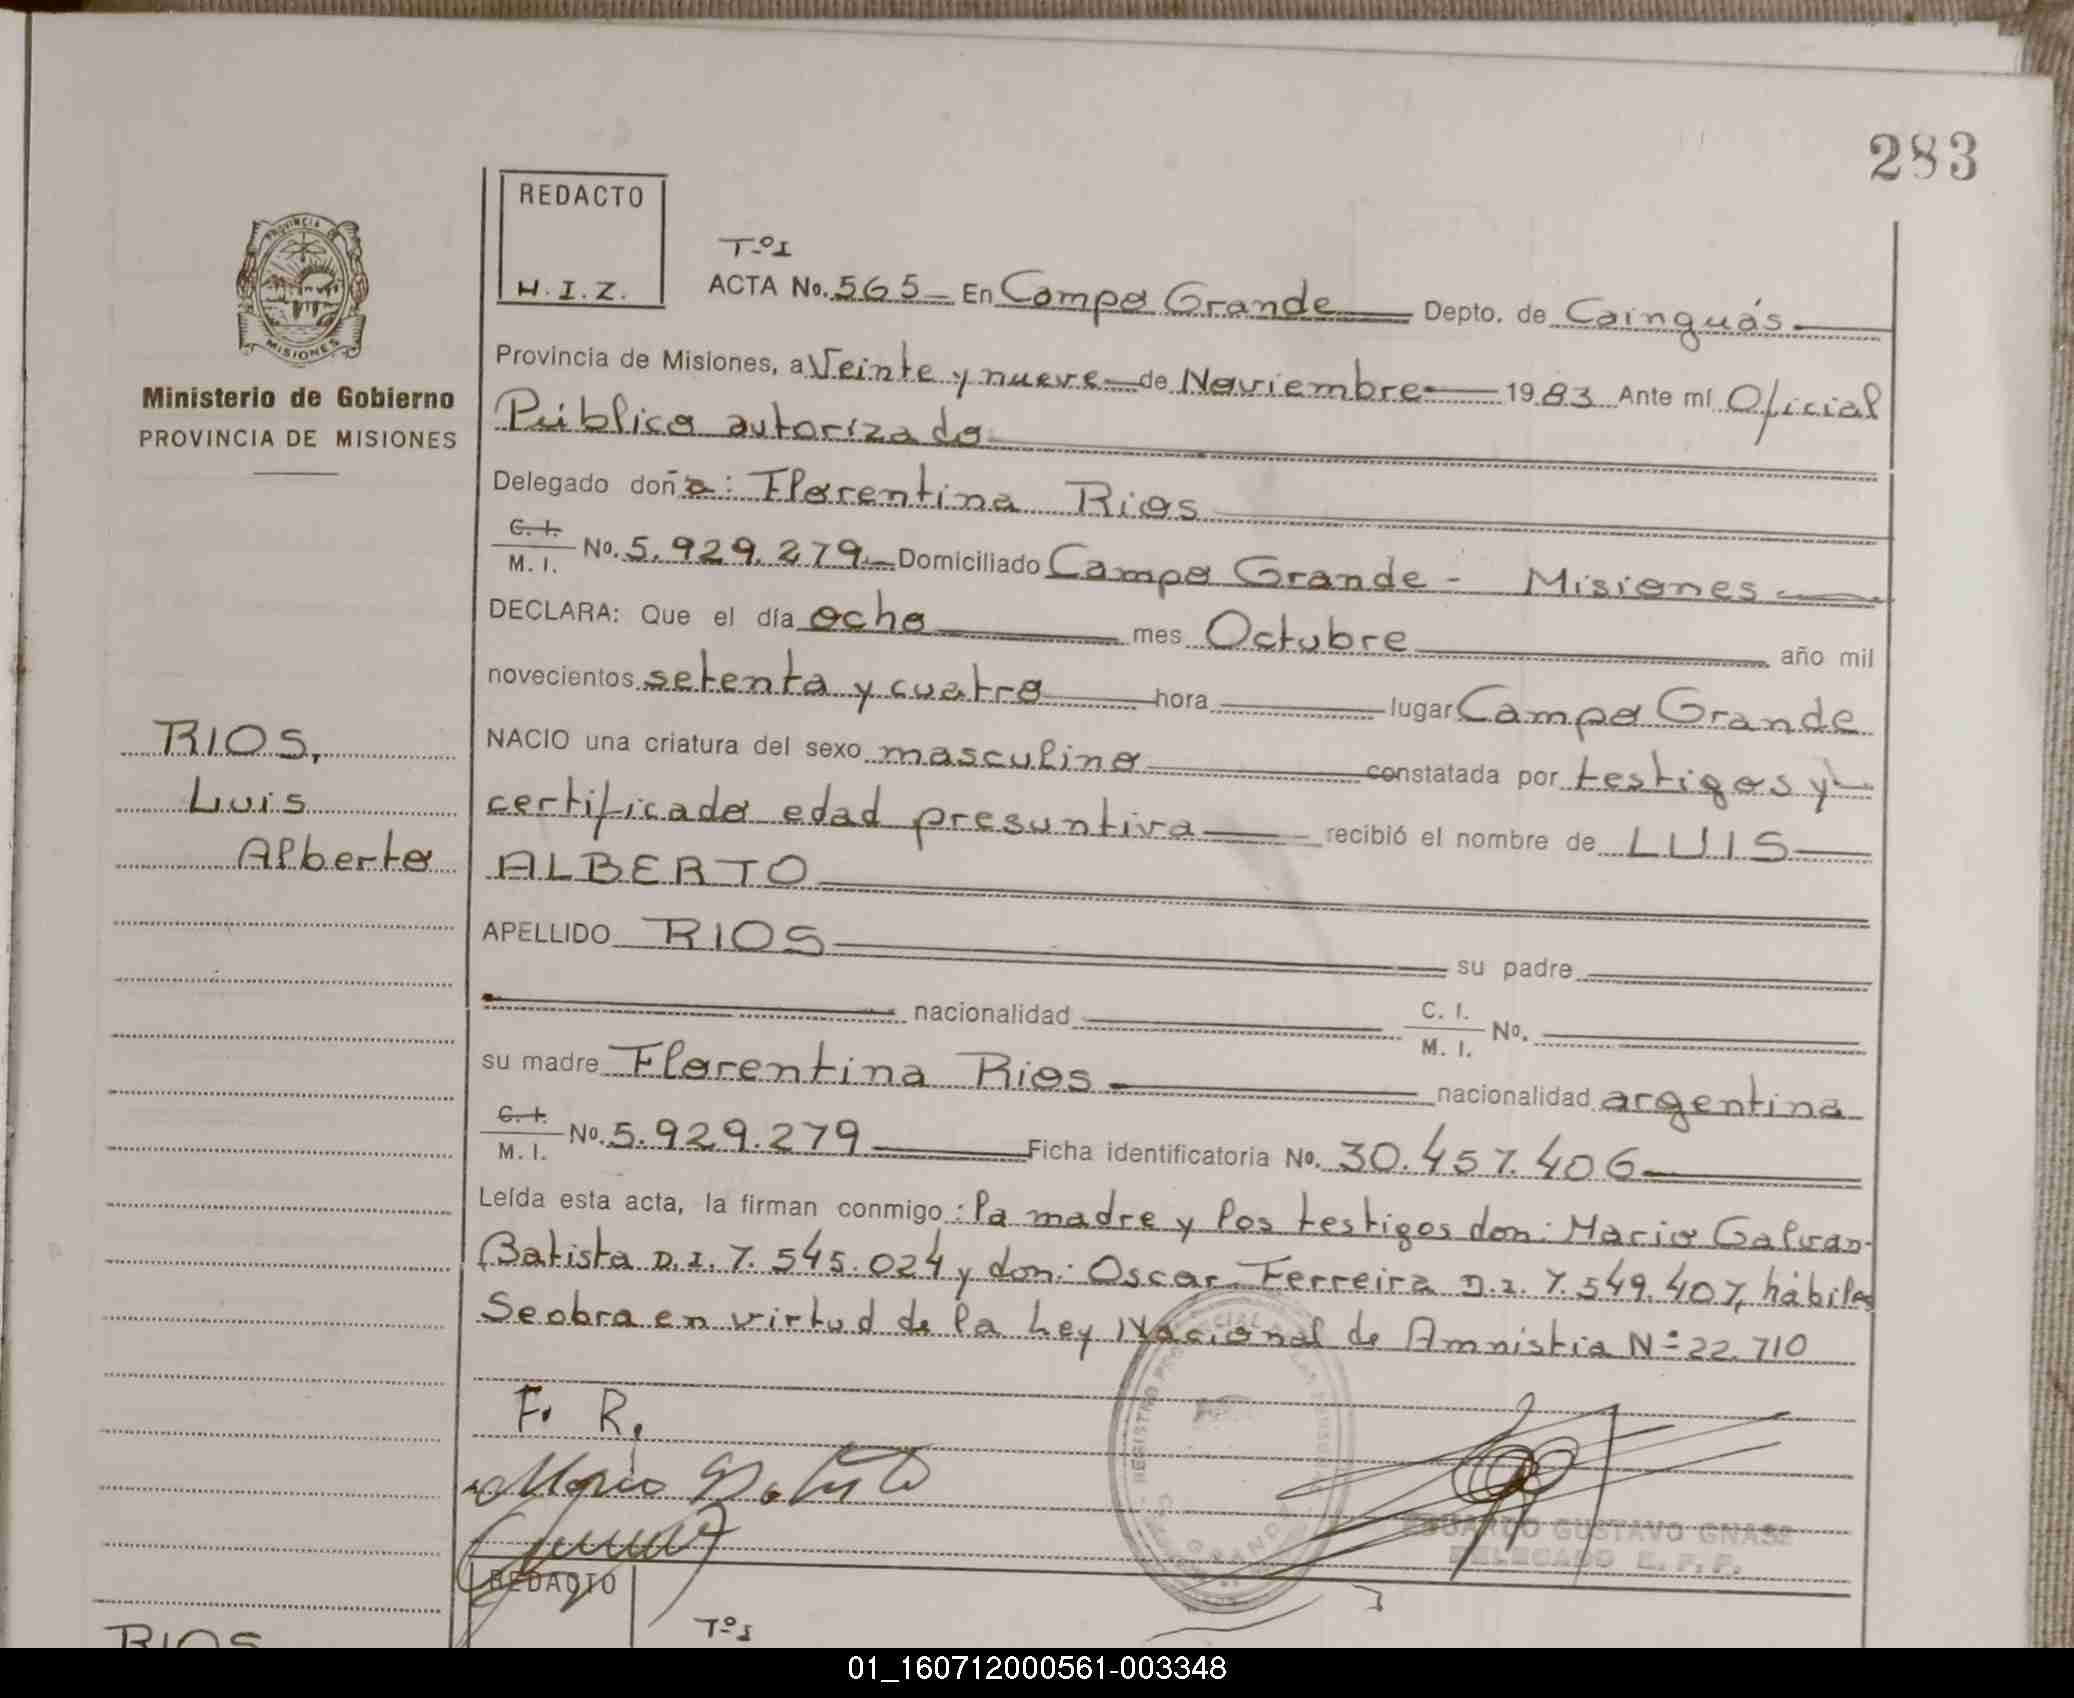 283
REDACTO
H.I.Z.
Tº1
ACTA No. 565 En Campo Grande Depto. de Cainguás
Provincia de Misiones, a Veinte y nueve de Noviembre 1983 Ante mí Oficial
Público autorizado
Delegado doña: Florentina Rios
C.I.
M.I. Nº. 5.929.279 Domiciliado Campo Grande - Misiones
DECLARA: Que el día ocho mes Octubre año mil
novecientos setenta y cuatro hora lugar Campo Grande
NACIO una criatura del sexo masculino constatada por testigos y
certificado edad presuntiva recibió el nombre de LUIS
ALBERTO
APELLIDO RIOS su padre
nacionalidad C. I.
M. I. Nº.
su madre Florentina Rios nacionalidad argentina
C.I.
M.I. Nº. 5.929.279 Ficha identificatoria Nº. 30.457.406
Leída esta acta, la firman conmigo: la madre y los testigos don: Mario Galvan
Batista D.I. 7.545.024 y don: Oscar Ferreira D.I. 7.549.407, hábiles
Se obra en virtud de la Ley Nacional de Amnistia Nº 22.710
F. R.
Mario Batista
EDUARDO GUSTAVO GNASS
DELEGADO R. P. P.
PROVINCIA DE
MISIONES
Ministerio de Gobierno
PROVINCIA DE MISIONES
RIOS,
Luis
Alberto
REDACTO
Tº1
RIOS
01_160712000561-003348